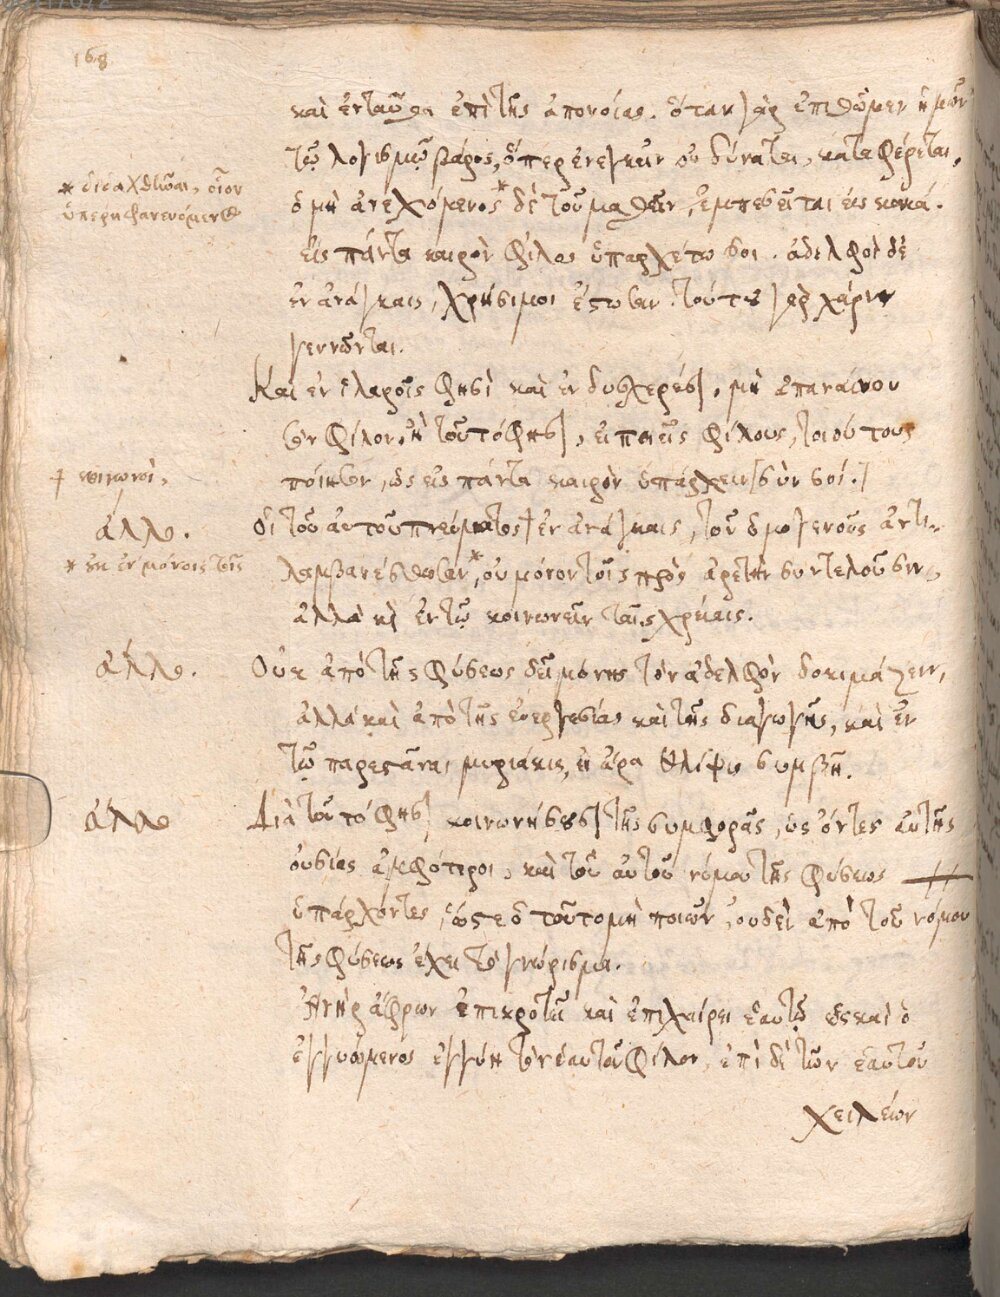 168
καὶ ἐνταῦθα ἐπὶ τῆς ἀπονοίας. ὅταν γὰρ ἐπιθῶμεν ἡμῶν
τῷ λογισμῷ βάρος, ὅπερ ἐνεγκεῖν οὐ δύναται, καταφέρεται,
* διδαχθῆναι, οἷον
ὑπερηφανευόμενος
ὁ μὴ ἀνεχόμενος* δὲ τοῦ μαθεῖν, ἐμπεσεῖται εἰς κακά.
εἰς πάντα καιρὸν φίλος ὑπαρχέτω σοι. ἀδελφοὶ δὲ
ἐν ἀνάγκαις, χρήσιμοι ἔστωσαν. τούτου γὰρ χάριν
γεννῶνται.
Καὶ ἐν ἱλαροῖς φησὶ καὶ ἐν δυσχερέσι, μὴ ἀπαναίνου
τὸν φίλον, ἢ τοῦτό φησι, εἰ ποιεῖς φίλους, τοιούτους
ποίησον, ὡς εἰς πάντα καιρὸν ὑπάρχειν [σύν σοί.]
+ κοινωνοὶ,
ἄλλο. οἱ τοῦ αὐτοῦ πνεύματος+ ἐν ἀνάγκαις, τοῦ ὁμογενοῦς ἀντι-
* οὐκ ἐν μόνοις τοῖς
λαμβανέσθωσαν*, οὐ μόνον τοῖς πρὸς ἀρετὴν συντελοῦσιν,
ἀλλὰ κὶ ἐν τῷ κοινωνεῖν ταῖς χρείαις.
ἄλλο. Οὐκ ἀπὸ τῆς φύσεως δεῖ μόνης τὸν ἀδελφὸν δοκιμάζειν,
ἀλλὰ καὶ ἀπὸ τῆς εὐεργεσίας καὶ τῆς διαγωγῆς, καὶ ἐν
τῷ παρεστάναι μυριάκις, ἢ ἄρα θλίψις συμβῇ.
ἄλλο Διὰ τοῦτό φησι κοινωνήσεις τῆς συμφορᾶς, ὡς ὄντες αὐτῆς
οὐσίας ἀμφότεροι, καὶ τοῦ αὐτοῦ νόμου τῆς φύσεως
ὑπάρχοντες, ὥστε ὁ τοῦτο μὴ ποιῶν, οὐδὲν ἀπὸ τοῦ νόμου
τῆς φύσεως ἔχει τὸ γνώρισμα.
Ἀνὴρ ἄφρων ἐπικροτεῖ καὶ ἐπιχαίρει ἑαυτῷ ὡς καὶ ὁ
ἐγγυώμενος ἐγγύῃ τὸν ἑαυτοῦ φίλον, ἐπὶ δὲ τῶν ἑαυτοῦ
χειλέων